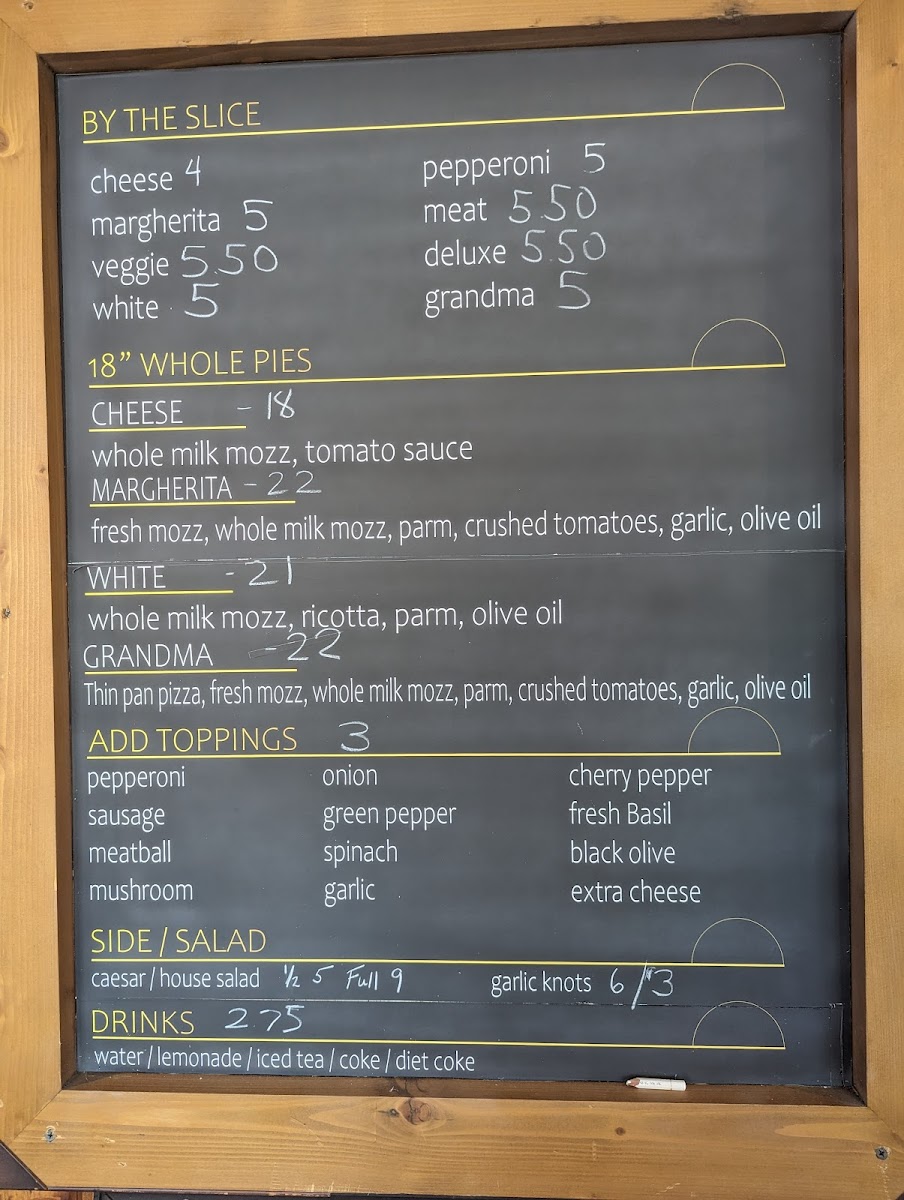 BY THE SLICE
cheese 4
margherita 5
veggie 5.50
white 5
pepperoni 5
meat 5.50
deluxe 5.50
grandma 5
18” WHOLE PIES
CHEESE - 18
whole milk mozz, tomato sauce
MARGHERITA - 22
fresh mozz, whole milk mozz, parm, crushed tomatoes, garlic, olive oil
WHITE - 21
whole milk mozz, ricotta, parm, olive oil
GRANDMA - 22
Thin pan pizza, fresh mozz, whole milk mozz, parm, crushed tomatoes, garlic, olive oil
ADD TOPPINGS 3
pepperoni onion cherry pepper
sausage green pepper fresh Basil
meatball spinach black olive
mushroom garlic extra cheese
SIDE / SALAD
caesar / house salad ½ 5 Full 9 garlic knots 6/$3
DRINKS 2.75
water / lemonade / iced tea / coke / diet coke